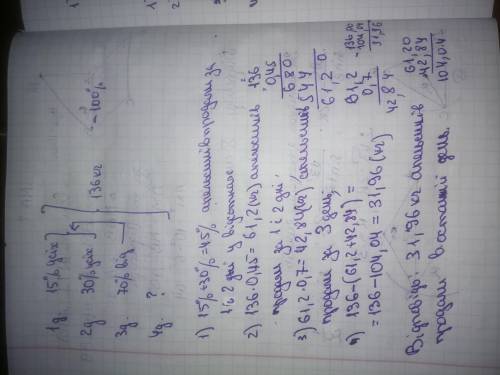 1д. 15% усіх
2д. 30% усіх
3д. 70% від
4д. ?
136 кг
= 100%
1) 15%+30%=45% апельсинів продали за
1 і 2 дні у відсотках
2) 136·0,45=61,2(кг) апельсинів
продали за 1 і 2 дні.
136
0,45
680
544
61,20
3) 61,2·0,7=42,84(кг) апельсинів
продали за 3 день,
61,2
0,7
42,84
4) 136-(61,2+42,84)=
=136-104,04=31,96(кг)
136,00
104,04
31,96
61,20
42,84
104,04
Відповідь: 31,96 кг апельсинів
продали в останній день.